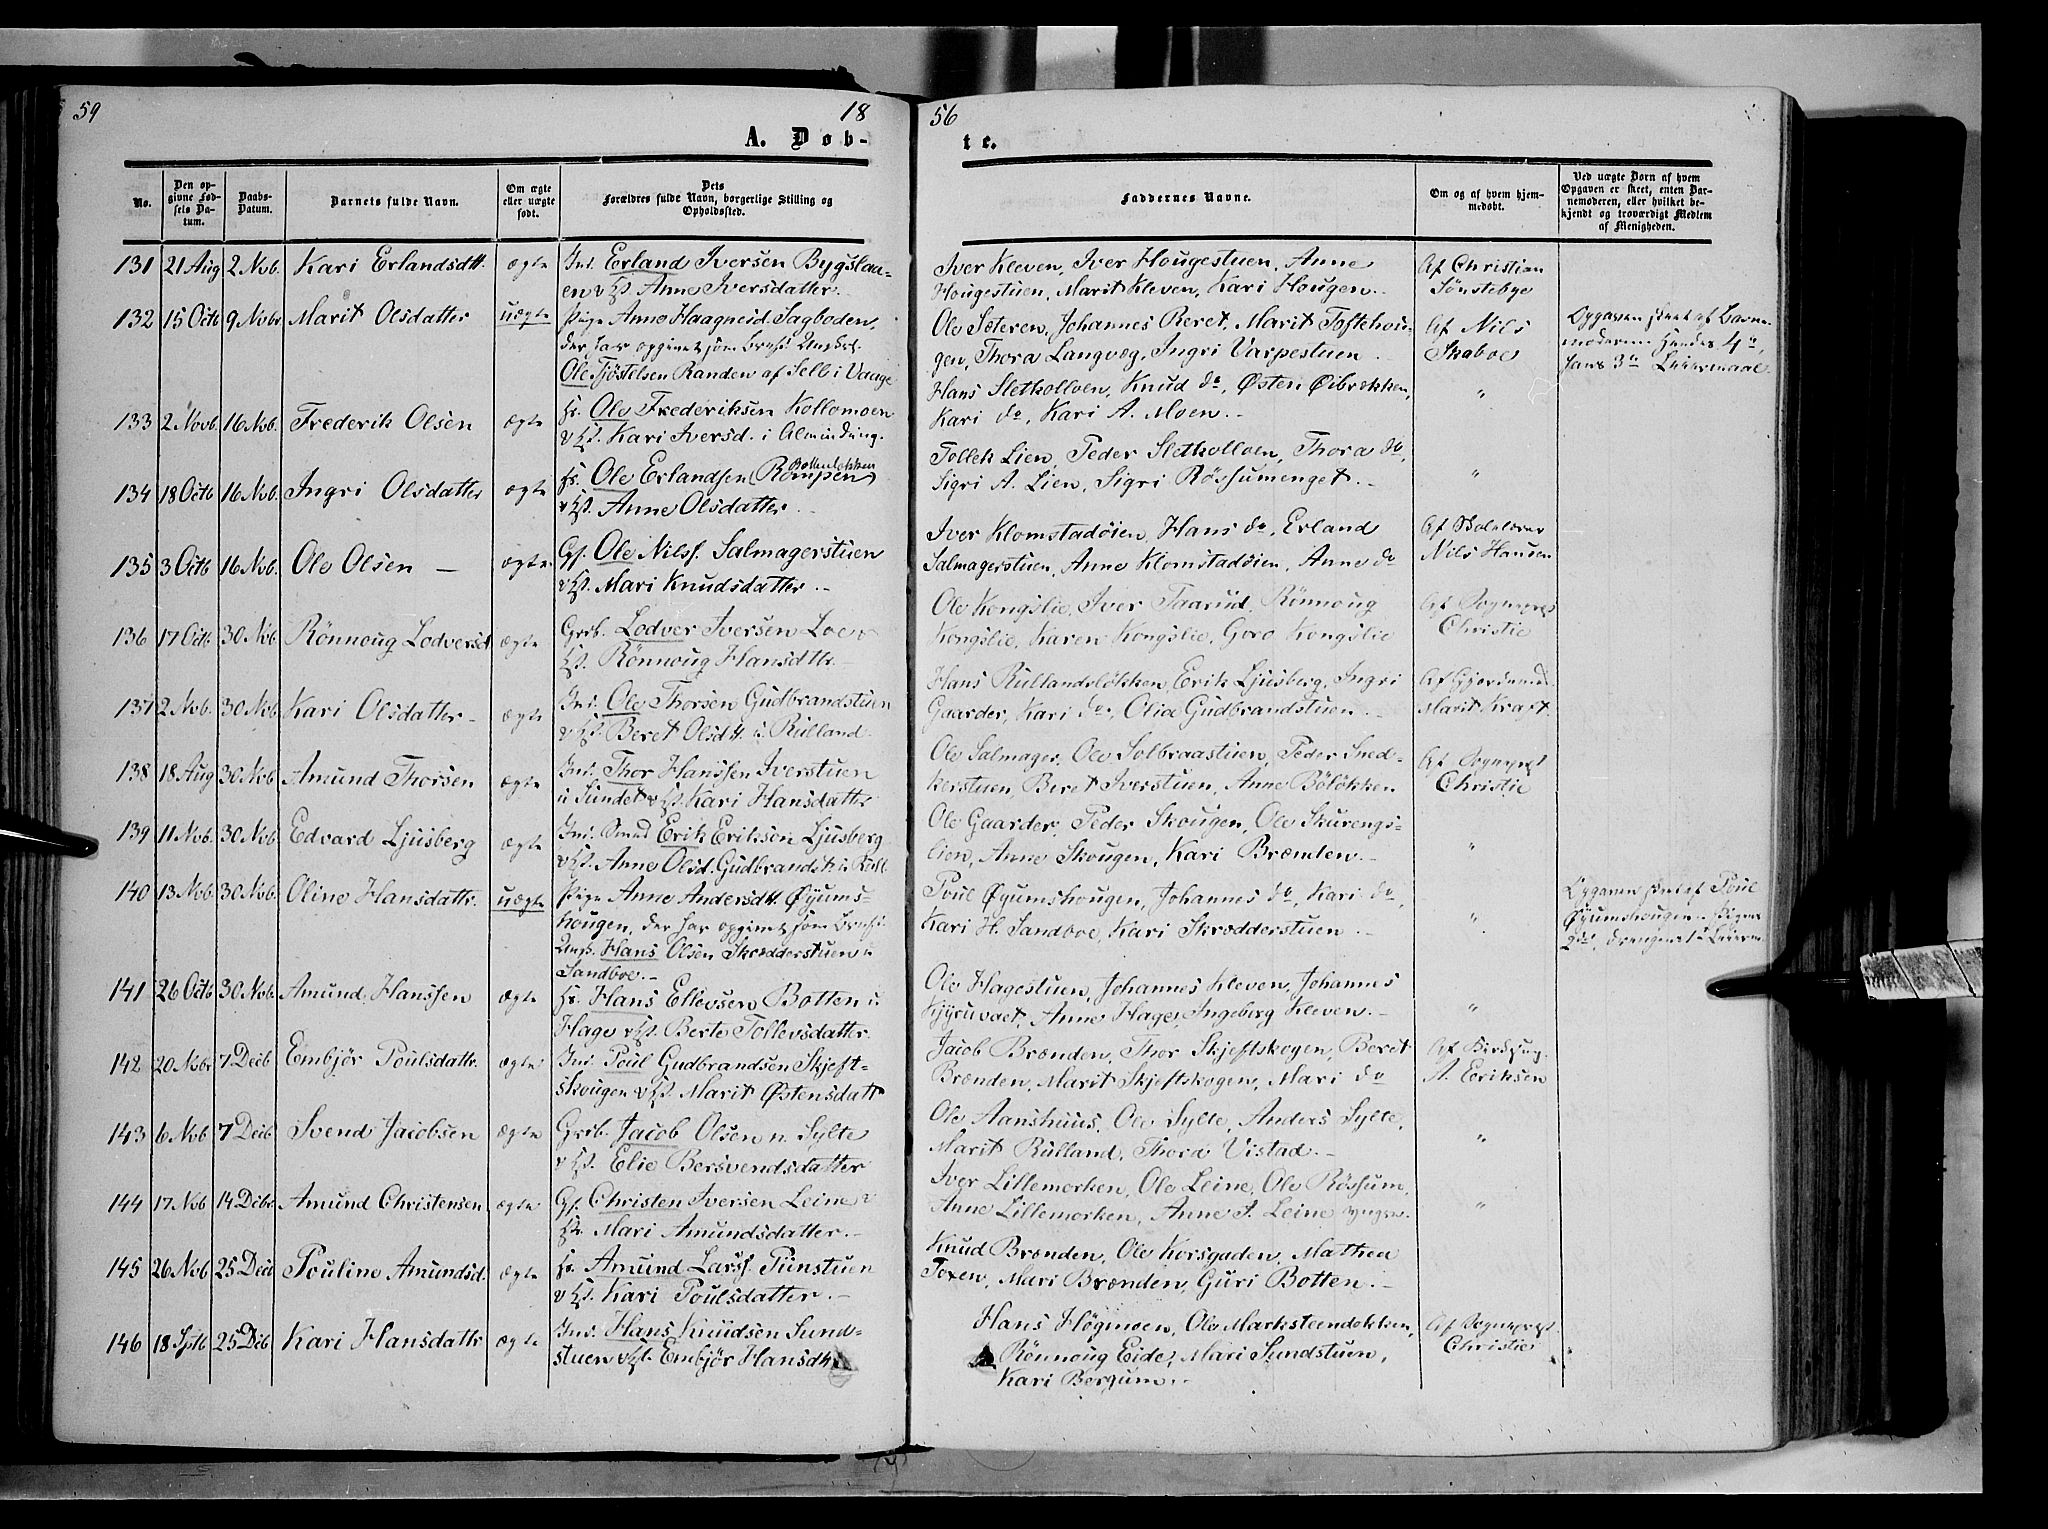 59
18
56
A. Døb-
te.
No.
Den op-
givne Fød-
sels Da-
tum.
Daabs-
Datum.
Barnets fulde Navn.
Om ægte
eller uægte
født.
Dets
Forældres fulde Navn, borgerlige Stilling og
Opholdssted.
Faddernes Navne.
Om og af hvem hjem-
medøbt.
Ved uægte Børn af hvem
Opgaven er skeet, enten Bar-
nemoderen, eller hvilket be-
kjendt og troværdigt Medlem
af Menigheden.
131 21 Aug 2 Nob. Kari Erlandsdtt. ægte Ind. Erland Iversen Bygslaa-
en v Hst. Anne Iversdatter.-
Iver Kleven, Iver Hougestuen, Anne
Hougestuen, Marit Kleven, Kari Hougen.-
Af Christian
Tønstebye
132 15 Octb 9 Nobr Marit Olsdatter uægte Pige Anne Haagneid Sagboden,
der har opgivet som Barnf: Ungkl.
Ole Tjøstelsen Randen af Sell i Vaage
Ole Sæteren, Johannes Beret, Marit Toftehou-
gen, Thora Langvæg, Ingri Varpestuen.
Af Nils
Skaboe
Opgaven skeet af Barne-
moderen. Hendes 4de,
hans 3die Leiermaal.
133 2 Novb. 16 Nob. Frederik Olsen ægte Hs. Ole Frederiksen Kollomoen
v Hst. Kari Iversd. i Alminding.
Hans Sletkolloen, Knud do, Østen Øibrekken,
Kari do, Kari A. Moen.-
"
134 18 Octb 16 Nob. Ingri Olsdatter ægte Hs. Ole Erlandsen (Rompen)
Bottenløkken
v Hst. Anne Olsdatter.
Tollek Lien, Peder Sletkolloen, Thora do,
Sigri A. Lien, Sigri Røssumenget.-
"
135 3 Octb 16 Nob. Ole Olsen - ægte Gf. Ole Nilss. Salmagerstuen
v Hst. Mari Knudsdatter.-
Iver Klomstadøien, Hans do, Erland
Salmagerstuen, Anne Klomstadøien, Anne do
Af Skolelærer
Nils Hansen
136 17 Octb 30 Nob Rønnoug Lodversd ægte Grb. Lodver Iversen Loe v
Hst. Rønnoug Hansdtr.-
Ole Kongslie, Iver Taarud, Rønnoug
Kongslie, Karen Kongslie, Goro Kongslie
Af Sognepræst
Christie
137 2 Nob. 30 Nob Kari Olsdatter - ægte Ind. Ole Thorsen Gudbrandstuen
v Hst. Beret Olsdtt. u. Rulland.
Hans Rullandsløkken, Erik Ljusberg, Ingri
Gaarder, Kari do, Olia Gudbrandstuen.-
Af Gjordemod.
Marit Kraft.
138 18 Aug 30 Nob Amund Thorsen ægte Ind. Thor Hanssen Iverstuen
u Sundet v Hst. Kari Hansdattr
Ole Salmager, Ole Solbraastuen, Peder Sned-
kerstuen, Beret Iverstuen, Anne Bøløkken
Af Sognepræst
Christie
139 11 Nob. 30 Nob. Edvard Ljusberg ægte Ind. Smed Erik Eriksen Ljusberg
v Hst. Anne Olsd. Gudbrandst. u Rull.
Ole Gaarder, Peder Skougen, Ole Skurengs-
lien, Anne Skougen, Kari Brænden.-
"
140 13 Nob 30 Nob. Oline Hansdattr. uægte Pige Anne Andersdtt. Øyums-
hougen, der har opgivet som Barnf:
Ungk. Hans Olsen Skrædderstuen u
Sandboe.-
Poul Øyumshougen, Johannes do, Kari do,
Kari H. Sandboe, Kari Skrædderstuen.-
"
Opgaven skeet af Poul
Øyumshougen. Pigens
2det, Drengens 1ste Leierm.
141 26 Octb 30 Nob. Amund Hanssen ægte Hs. Hans Ellevsen Botten u
Hage v Hst. Berte Tollevsdatter.
Ole Hagestuen, Johannes Kleven, Johannes
Kjyruvaet, Anne Hage, Ingeberg Kleven.-
"
142 20 Nobr 7 Decb Embjør Poulsdattr. ægte Ind. Poul Gudbrandsen Skjeft-
skougen v Hst. Marit Østensdatt
Jacob Brænden, Thor Skjeftskogen, Beret
Brænden, Marit Skjeftskogen, Mari do
Af Kirkesang.
A. Eriksen
143 6 Nob 7 Decb Svend Jacobsen ægte Grb. Jacob Olsen n. Sylte
v Hst. Elie Bersvendsdatter
Ole Aanshuus, Ole Sylte, Anders Sylte,
Marit Rulland, Thora Vistad.-
"
144 17 Nob 14 Debr Amund Christensen ægte Gf. Christen Iversen Leine v
Hst. Mari Amundsdatter.-
Iver Lillemorken, Ole Leine, Ole Røssum,
Anne Lillemorken, Anne I. Leine yngre.
"
145 26 Nob 25 Decb Pouline Amundsd. ægte Hs. Amund Larss. Tunstuen
v Hst. Kari Poulsdatter.-
Knud Brænden, Ole Korsgaden, Mathea
Toxen, Mari Brænden, Guri Botten.-
146 18 Sptb 25 Deb Kari Hansdattr ægte Ind. Hans Knudsen Sund-
stuen v Hst. Embjør Hansdtt.
Hans Høgmoen, Ole Marksteenløkken,
Rønnoug Eide, Mari Sundstuen,
Kari Bergum.-
Af Sognepræst
Christie